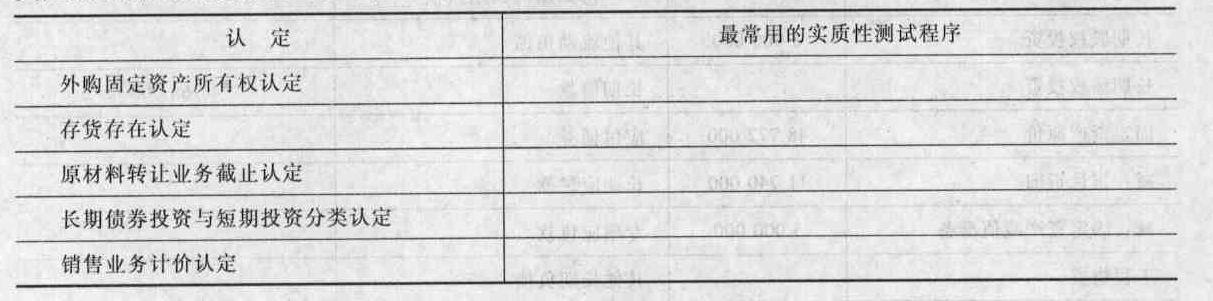 认 定 最常用的实质性测试程序
外购固定资产所有权认定
存货存在认定
原材料转让业务截止认定
长期债券投资与短期投资分类认定
销售业务计价认定